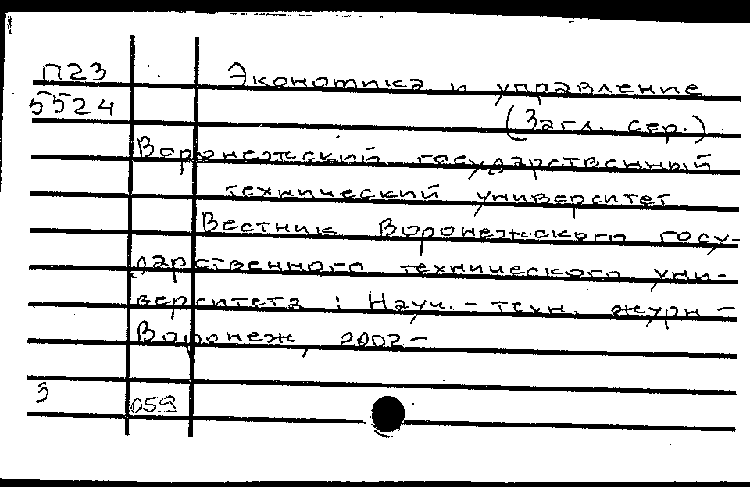 П23 Экономика и управление
5524 (Загл. сер.)
Воронежский государственный
технический университет
Вестник Воронежского госу-
дарственного технического уни-
верситета : Науч.-техн. журн -
Воронеж, 2002 -
3 059